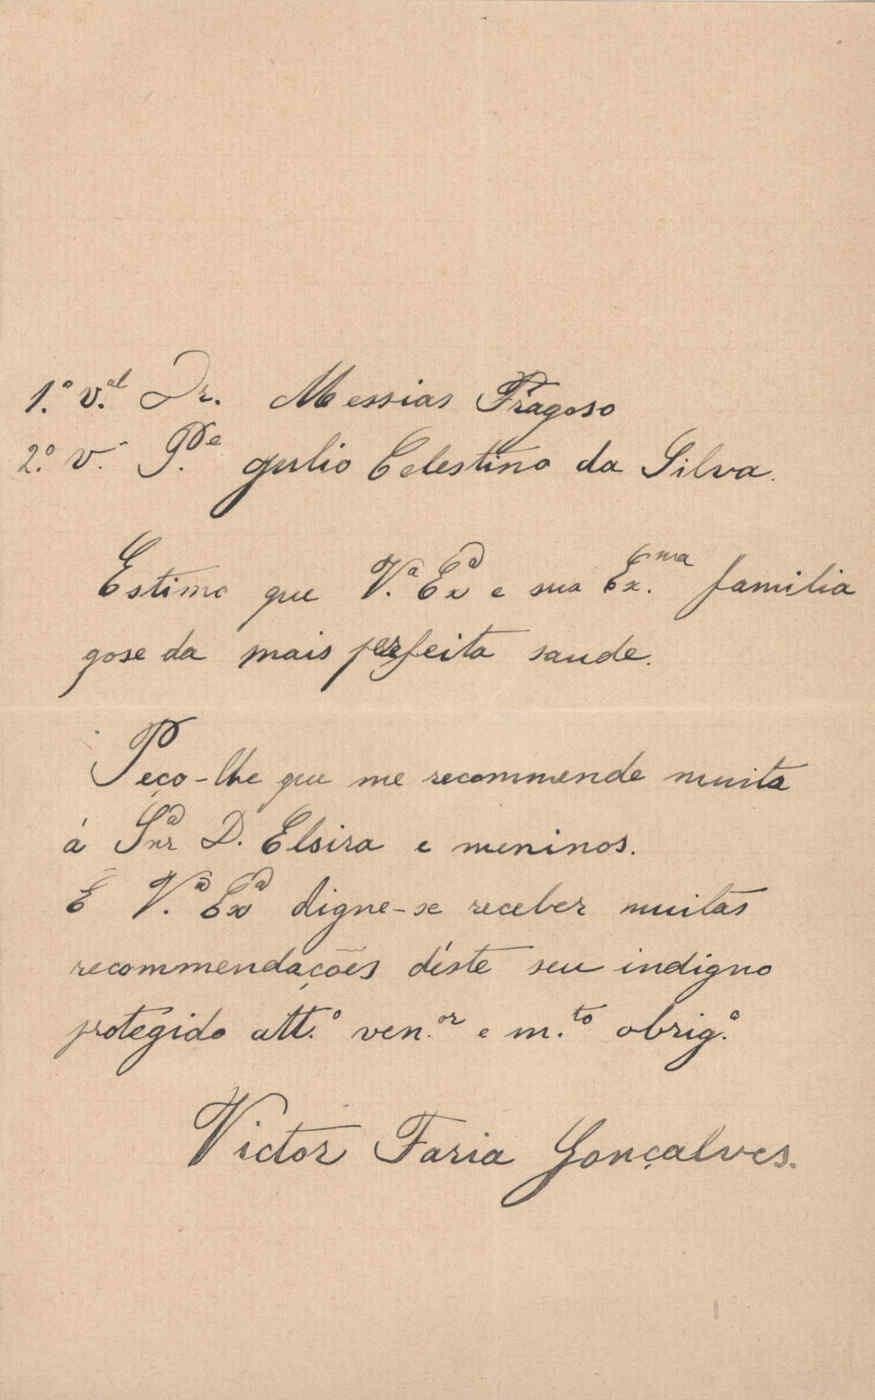 1.º v.al Dr. Messias Fragoso
2.º V. P.e Julio Celestino da Silva.
Estimo que V.ª Exª e sua Ex.ma familia
gose da mais perfeita saude.
Peço-lhe que me recommende muito
á Snrª D. Elsira e meninos.
E V.ª Exª digne-se receber muitas
recommendações d'éste seu indigno
protégido att.º ven.or e m.to obrig.º
Victor Faria Gonçalves.